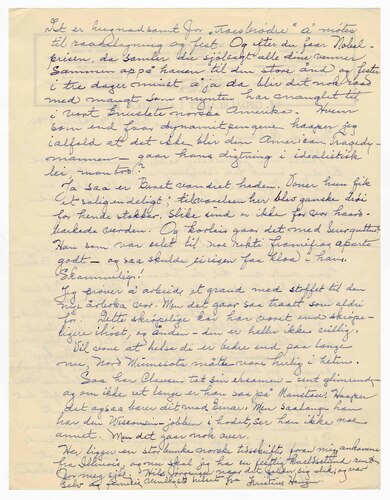 Det er hugnadsamt for "troesbrødre" å møtes
til raadslagning og fest. Og efter du faar Nobel-
prisen, da samler du sjølsagt alle dine venner
sammen oppå haugen til den store ånd og fester
i tre dager minst, å ja da blir det nok raad
med mangt som mynten har manglet til
i vort Amerika. Hvem
som end faar dynamitpengene haaper jeg
ialfald at det ikke blir den American Tragedy-
mannen - gaar hans digtning i idealistisk
lei, mon tro?
Ja saa er Buset vandret heden. Doner hun fik
et saligen deilig; tilværelsen her blev ganske drøi
for hende stakkar. Slike sind er ikke for vor haard-
barkede verden. Og korleis gaar det med
Han som var eslet til noe rikti framifra aparte
godt - og saa skulde eisisen faa kloa i ham.
Skammelig!
Jeg prøver å arbeid et grand med stoffet til den
nye årboka vor. Men det gaar saa traatt som aldri
før. Dette skrøpelige kar har været end skrøpe-
ligere ihøst, og ånden - den er heller ikke villig.
Vil vone at helsa di er bedre end paa lange
nu, Nord Minnesota måtte være herlig i heten.
Saa har Clausen tat sin eksamen - rent glimrende
og om ikke ret lenge er han saa på Manitou. Haaper
det ogsaa bærer dit med Einar. Men saalenge han
har den Wisconsin-jobben i hodet, ser han ikke noe
annet. Men det gaar nok over.
Her ligger en stor bunke norske tidsskrifter foran mig ankomne
fra Illinois, og nu skal jeg ha en
for meg sjøl. Hils Jorunn naar det høver seg slik, og vær
selv og familie venligst hilset fra Kristine Haugen.